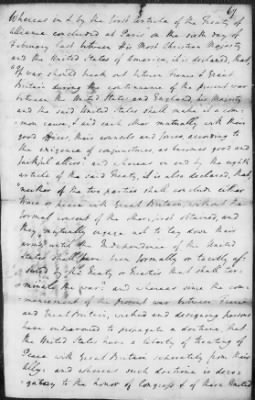 67
Whereas in & by the first article of the Treaty of
Alliance concluded at Paris on the sixth day of
February last between His Most Christian Majesty
and the United States of America, it is declared, that,
"If war should break out between France & Great
Britain during the continuance of the present war
between the United States and England, his Majesty
and the said United States shall make it a com-
mon cause, & aid each other mutually with their
good offices, their councils and forces, according to
the exigence of conjunctures, as becomes good and
faithful allies" and whereas in and by the eighth
article of the said Treaty, it is also declared, that,
"neither of the two parties shall conclude either
truce or peace with Great Britain, without the
formal consent of the other, first obtained, and
they mutually engage not to lay down their
arms until the Independence of the United
States shall have been formally or tacitly assu-
red by the treaty or treaties that shall ter-
minate the war." and whereas since the com-
mencement of the present war between France
and Great Britain, wicked and designing persons
have endeavored to propagate a doctrine, that
the United States have a liberty of treating of
Peace with Great Britain separately from their
Ally; and whereas such doctrine is dero-
gatory to the honor of Congress & of these United